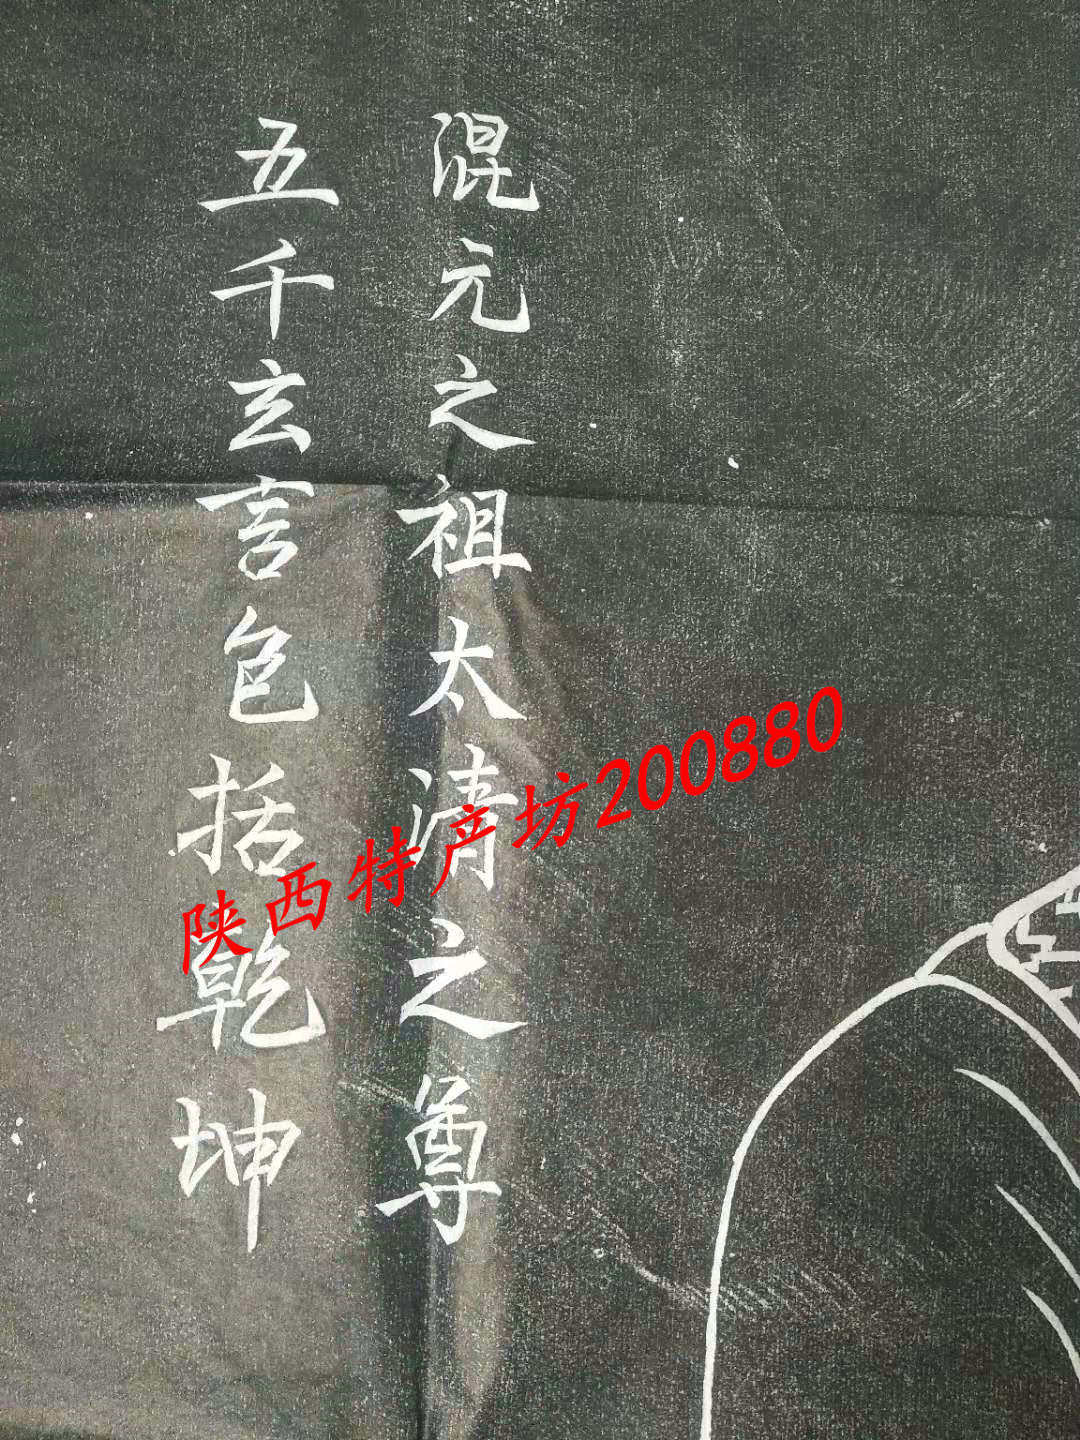 混元之祖太清之尊
五千玄言包括乾坤
陕西特产坊200880